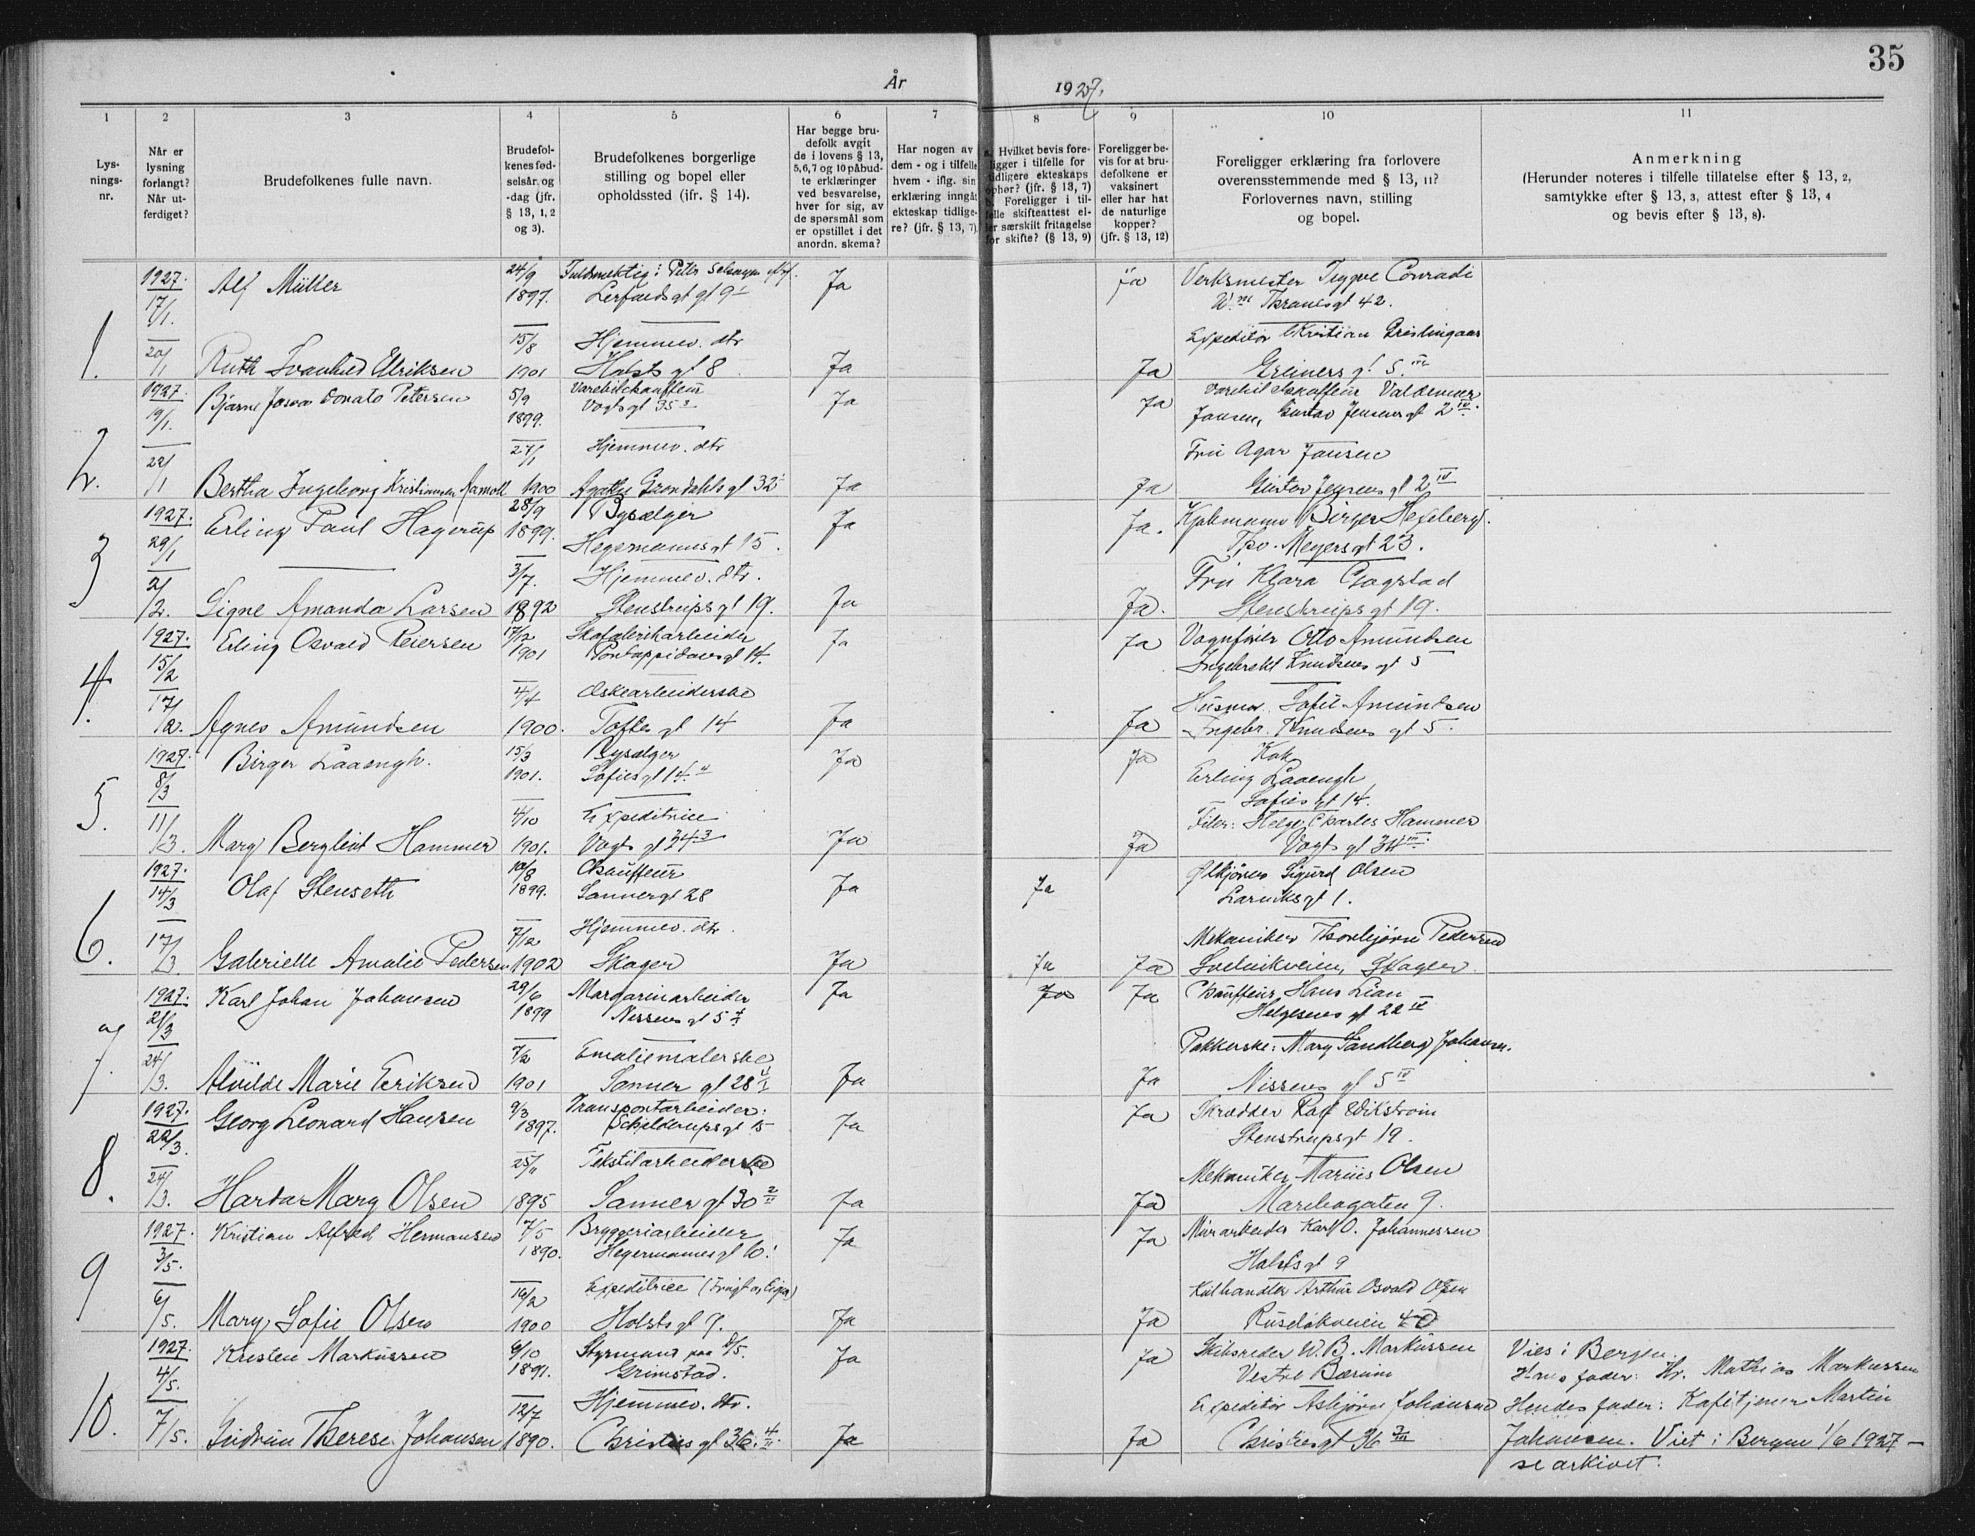 35
År 1927.
1 2 3 4 5 6 7 8 9 10 11
Lysningsnr.
Når er lysning forlangt? Når utferdiget?
Brudefolkenes fulle navn.
Brudefolkenes fødselsår og -dag (jfr. § 13, 1, 2 og 3).
Brudefolkenes borgerlige stilling og bopel eller opholdssted (jfr. § 14).
Har begge brudefolk avgit de i lovens § 13, 5,6,7 og 10 påbudte erklæringer ved besvarelse, hver for sig, av de spørsmål som er opstillet i det anordn. skema?
Har nogen av dem - og i tilfelle hvem - iflg. sin erklæring inngåt ekteskap tidligere? (jfr. § 13, 7)
a. Hvilket bevis foreligger i tilfelle for tidligere ekteskaps ophør? (jfr. § 13, 7) b. Foreligger i tilfelle skifteattest eller særskilt fritagelse for skifte? (§ 13, 9)
Foreligger bevis for at brudefolkene er vaksinert eller har hat de naturlige kopper? (jfr. § 13, 12)
Foreligger erklæring fra forlovere overensstemmende med § 13, 11? Forlovernes navn, stilling og bopel.
Anmerkning (Herunder noteres i tilfelle tillatelse efter § 13, 2, samtykke efter § 13, 3, attest efter § 13, 4 og bevis efter § 13, 8).
1. 1927. 17/1. Alf Müller 24/9 1897. Ja Ja Verksmester Trygve Conradi
Thranesgt 42.
20/1 Ruth Svanhild Eriksen 15/8 1901 Hjemmev. dtr Holsts gt 8 Ja Ja Expeditør Kristian
Greiners gt. 5.III
2. 1927. 19/1. Bjarne Donato Petersen 5/9 1899. Varebilchauffeur Vogts gt 35 Ja Ja Varebilchauffeur Valdemar
Jansen, Gustav Jensens gt 2 IV.
22/1 Bertha Ingeborg Kristiansen 27/1 1900 Hjemmev. dtr Agathe Grøndahls gt 32 Ja Ja Fru Agar Jansen
Gustav Jensens gt 2 IV
3 1927. 29/1 Erling Paul Hagerup 28/9 1899. Bysælger Hegermannsgt 15. Ja Ja. Birger
Thv. Meyersgt 23.
2/2. Signe Amanda Larsen 3/7. 1892 Hjemmev. dtr. Stenstrupsgt 19. Ja Ja. Fru Klara Gagstad
Stenstrupsgt 19.
4. 1927. 15/2 Erling Osvald Reiersen 17/12 1901 Skofabrikarbeider Pontoppidansgt 14. Ja Ja Vognfører Otto Amundsen
Ingebrekt Knudsens gt 5
17/2. Agnes Amundsen 4/4 1900. Æskearbeiderske Toftes gt 14 Ja Ja Husmor Sofie Amundsen
Ingebr. Knudsens gt 5.
5. 1927. 8/3 Birger Laaengh. 15/3 1901. Bysælger Sofiesgt 14 Ja Ja Kok
Erling Laaengh
Sofies gt 14.
11/3. Mary Bergliot Hammer 4/10 1901. Expeditrice Vogts gt 34 3 Ja Ja Helge Charles Hammer
Vogts gt 34 III.
6. 1927. 14/3 Olaf Stenseth 10/8 1899. Chauffeur Sannergt 28 Ja Ja Ølkjører Sigurd Olsen
Larviksgt 1.
17/3 Gabrielle Amalie Pedersen 7/12 1902 Hjemmev. dtr. Skoger Ja Ja Ja Mekaniker Thorbjørn Pedersen
Svelvikveien, Skoger
7. 1927. 21/3 Karl Johan Johansen 29/6 1899 Margarinarbeider Nissens gt 5 Ja Ja Ja Chauffeur Hans Lian
Helgesens gt 22 IV
24/3. Alvilde Marie Eriksen 7/2 1901 Emaliemalerske Sanner gt 28 Ja Ja Pakkerske: Mary Sandberg Johansen.
Nissens gt 5 IV
8. 1927. 22/3. Georg Leonard Hansen 9/3 1897. Transportarbeider. Schelderupsgt 15 Ja Ja Skrædder Ralf Wikstrøm
Stenstrupsgt 19.
24/3. Harda Mary Olsen 25/11 1895 Tekstilarbeiderske Sanner gt 30 Ja Ja Mekaniker Marius Olsen
Maridagaten 9.
9 1927. 3/5. Kristian Alfred Hermansen 7/5 1890. Bryggeriarbeider Hegermannsgt 10. Ja Ja Murarbeider Karl O. Johannessen
Holstsgt 9
6/5. Mary Sofie Olsen 16/2 1900 Expeditrice (Frugt og Cigar) Holsts gt 9. Ja Ja Kulhandler Arthur Osvald Olsen
Ruseløkveien 40
10. 1927. 4/5. Kristen Markussen 9/10 1891. Styrmann paa Grimstad. Ja Ja Skibsreder W. B. Markussen
Vestre Bærum
Vies i Bergen.
Hans fader: Hr. Mathias Markussen
7/5. Gudrun Therese Johansen 12/7 1890. Hjemmev. dtr. Christies gt 36. Ja Ja Expeditør Asbjørn Johansen
Christiesgt 36
Hendes fader: Kafétjener Martin
Johansen. Viet i Bergen 1/6 1927 –
se arkivet.